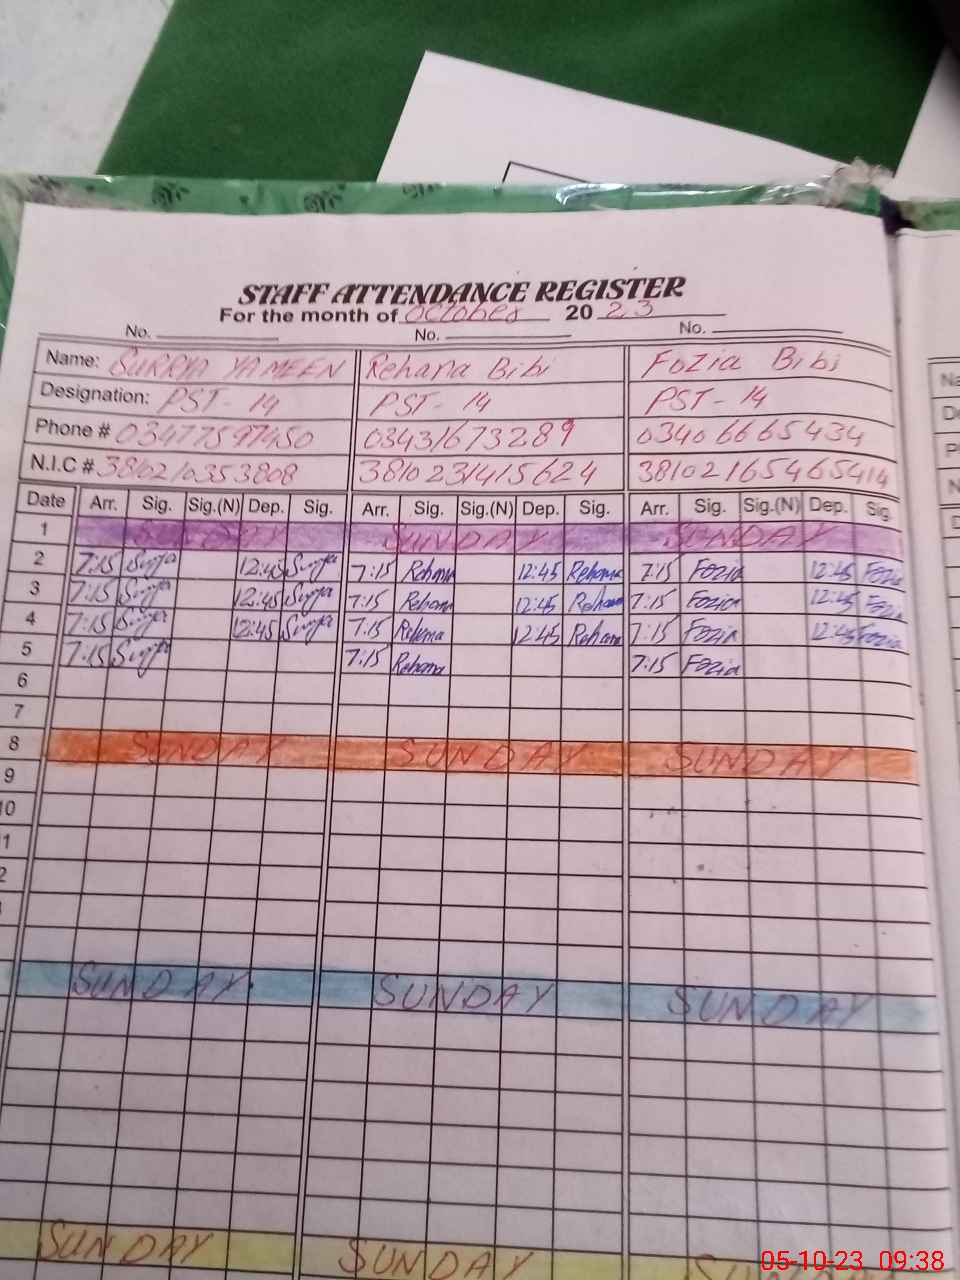 STAFF ATTENDANCE REGISTER
For the month of October 20 23
No. No. No.
Name: SURRYA YAMEEN Rehana Bibi Fozia Bibi
Designation: PST-14 PST-14 PST-14
Phone # 03477597450 03431673289 03406665434
N.I.C # 3810210353808 3810231415624 3810216546541
Date Arr. Sig. Sig.(N) Dep. Sig. Arr. Sig. Sig.(N) Dep. Sig. Arr. Sig. Sig.(N) Dep. Sig.
1 SUNDAY SUNDAY SUNDAY
2 7:15 Surya 12:45 Surya 7:15 Rehana 12:45 Rehana 7:15 Fozia 12:45 Fozia
3 7:15 Surya 12:45 Surya 7:15 Rehana 12:45 Rehana 7:15 Fozia 12:45 Fozia
4 7:15 Surya 12:45 Surya 7:15 Rehana 12:45 Rehana 7:15 Fozia 12:45 Fozia
5 7:15 Surya 7:15 Rehana 7:15 Fozia
6
7
8 SUNDAY SUNDAY SUNDAY
9
10
1
2
SUNDAY SUNDAY SUNDAY
SUNDAY SUNDAY SUN
05-10-23 09:38